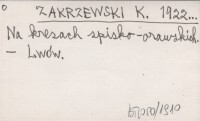 ZAKRZEWSKI K. 1922...
Na kresach spisko-orawskich.
- Lwów.